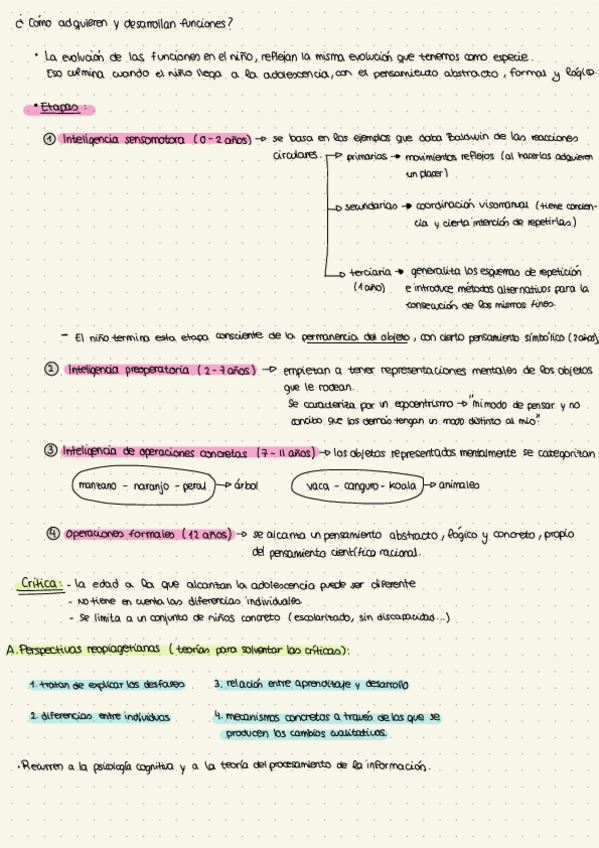 ¿ Cómo adquieren y desarrollan funciones?
• La evolución de las funciones en el niño, reflejan la misma evolución que tenemos como especie.
Eso culmina cuando el niño llega a la adolescencia, con el pensamiento abstracto, formal y lógico.
• Etapas:
① Inteligencia sensomotora (0-2 años) → se basa en los ejemplos que daba Baldwin de las reacciones
circulares.
primarias → movimientos reflejos (al hacerlos adquieren
un placer)
secundarias → coordinación visomanual (tiene concien-
cia y cierta intención de repetirlas)
terciaria → generaliza los esquemas de repetición
(1 año) e introduce métodos alternativos para la
consecución de los mismos fines.
- El niño termina esta etapa consciente de la permanencia del objeto, con cierto pensamiento simbólico (2 años)
② Inteligencia preoperatoria (2-7 años) → empiezan a tener representaciones mentales de los objetos
que le rodean.
Se caracteriza por un egocentrismo → "mi modo de pensar y no
concibo que los demás tengan un modo distinto al mío".
③ Inteligencia de operaciones concretas (7-11 años) → los objetos representados mentalmente se categorizan
manzano - naranjo - peral → árbol vaca - canguro - koala → animales
④ Operaciones formales (12 años) → se alcanza un pensamiento abstracto, lógico y concreto, propio
del pensamiento científico racional.
Crítica: - la edad a la que alcanzan la adolescencia puede ser diferente
- No tiene en cuenta las diferencias individuales.
- Se limita a un conjunto de niños concreto (escolarizado, sin discapacidad...)
A. Perspectivas neopiagetianas (teorías para solventar las críticas):
1. tratan de explicar los desfases 3. relación entre aprendizaje y desarrollo
2. diferencias entre individuos 4. mecanismos concretos a través de los que se
producen los cambios cualitativos.
· Recurren a la psicología cognitiva y a la teoría del procesamiento de la información.